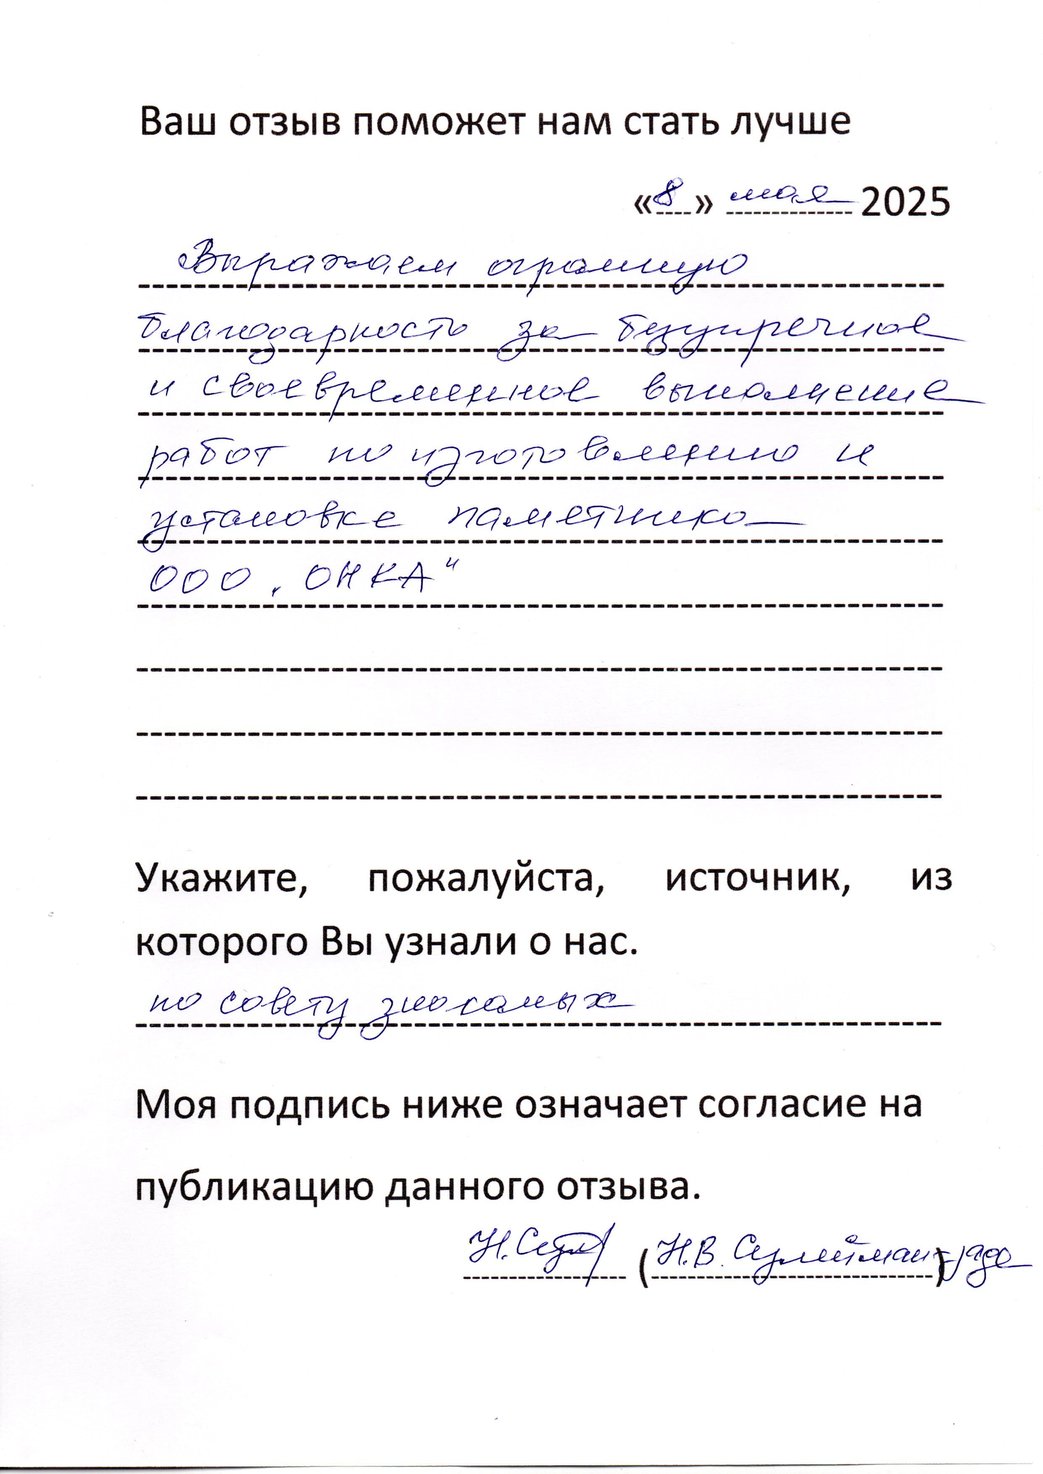 Ваш отзыв поможет нам стать лучше
«8» мая 2025
Выражаем огромную
благодарность за безупречное
и своевременное выполнение
работ по изготовлению и
установке памятника
ООО „ОНКА“
Укажите, пожалуйста, источник, из
которого Вы узнали о нас.
по совету знакомых
Моя подпись ниже означает согласие на
публикацию данного отзыва.
(Н.В. Сулейман-заде)